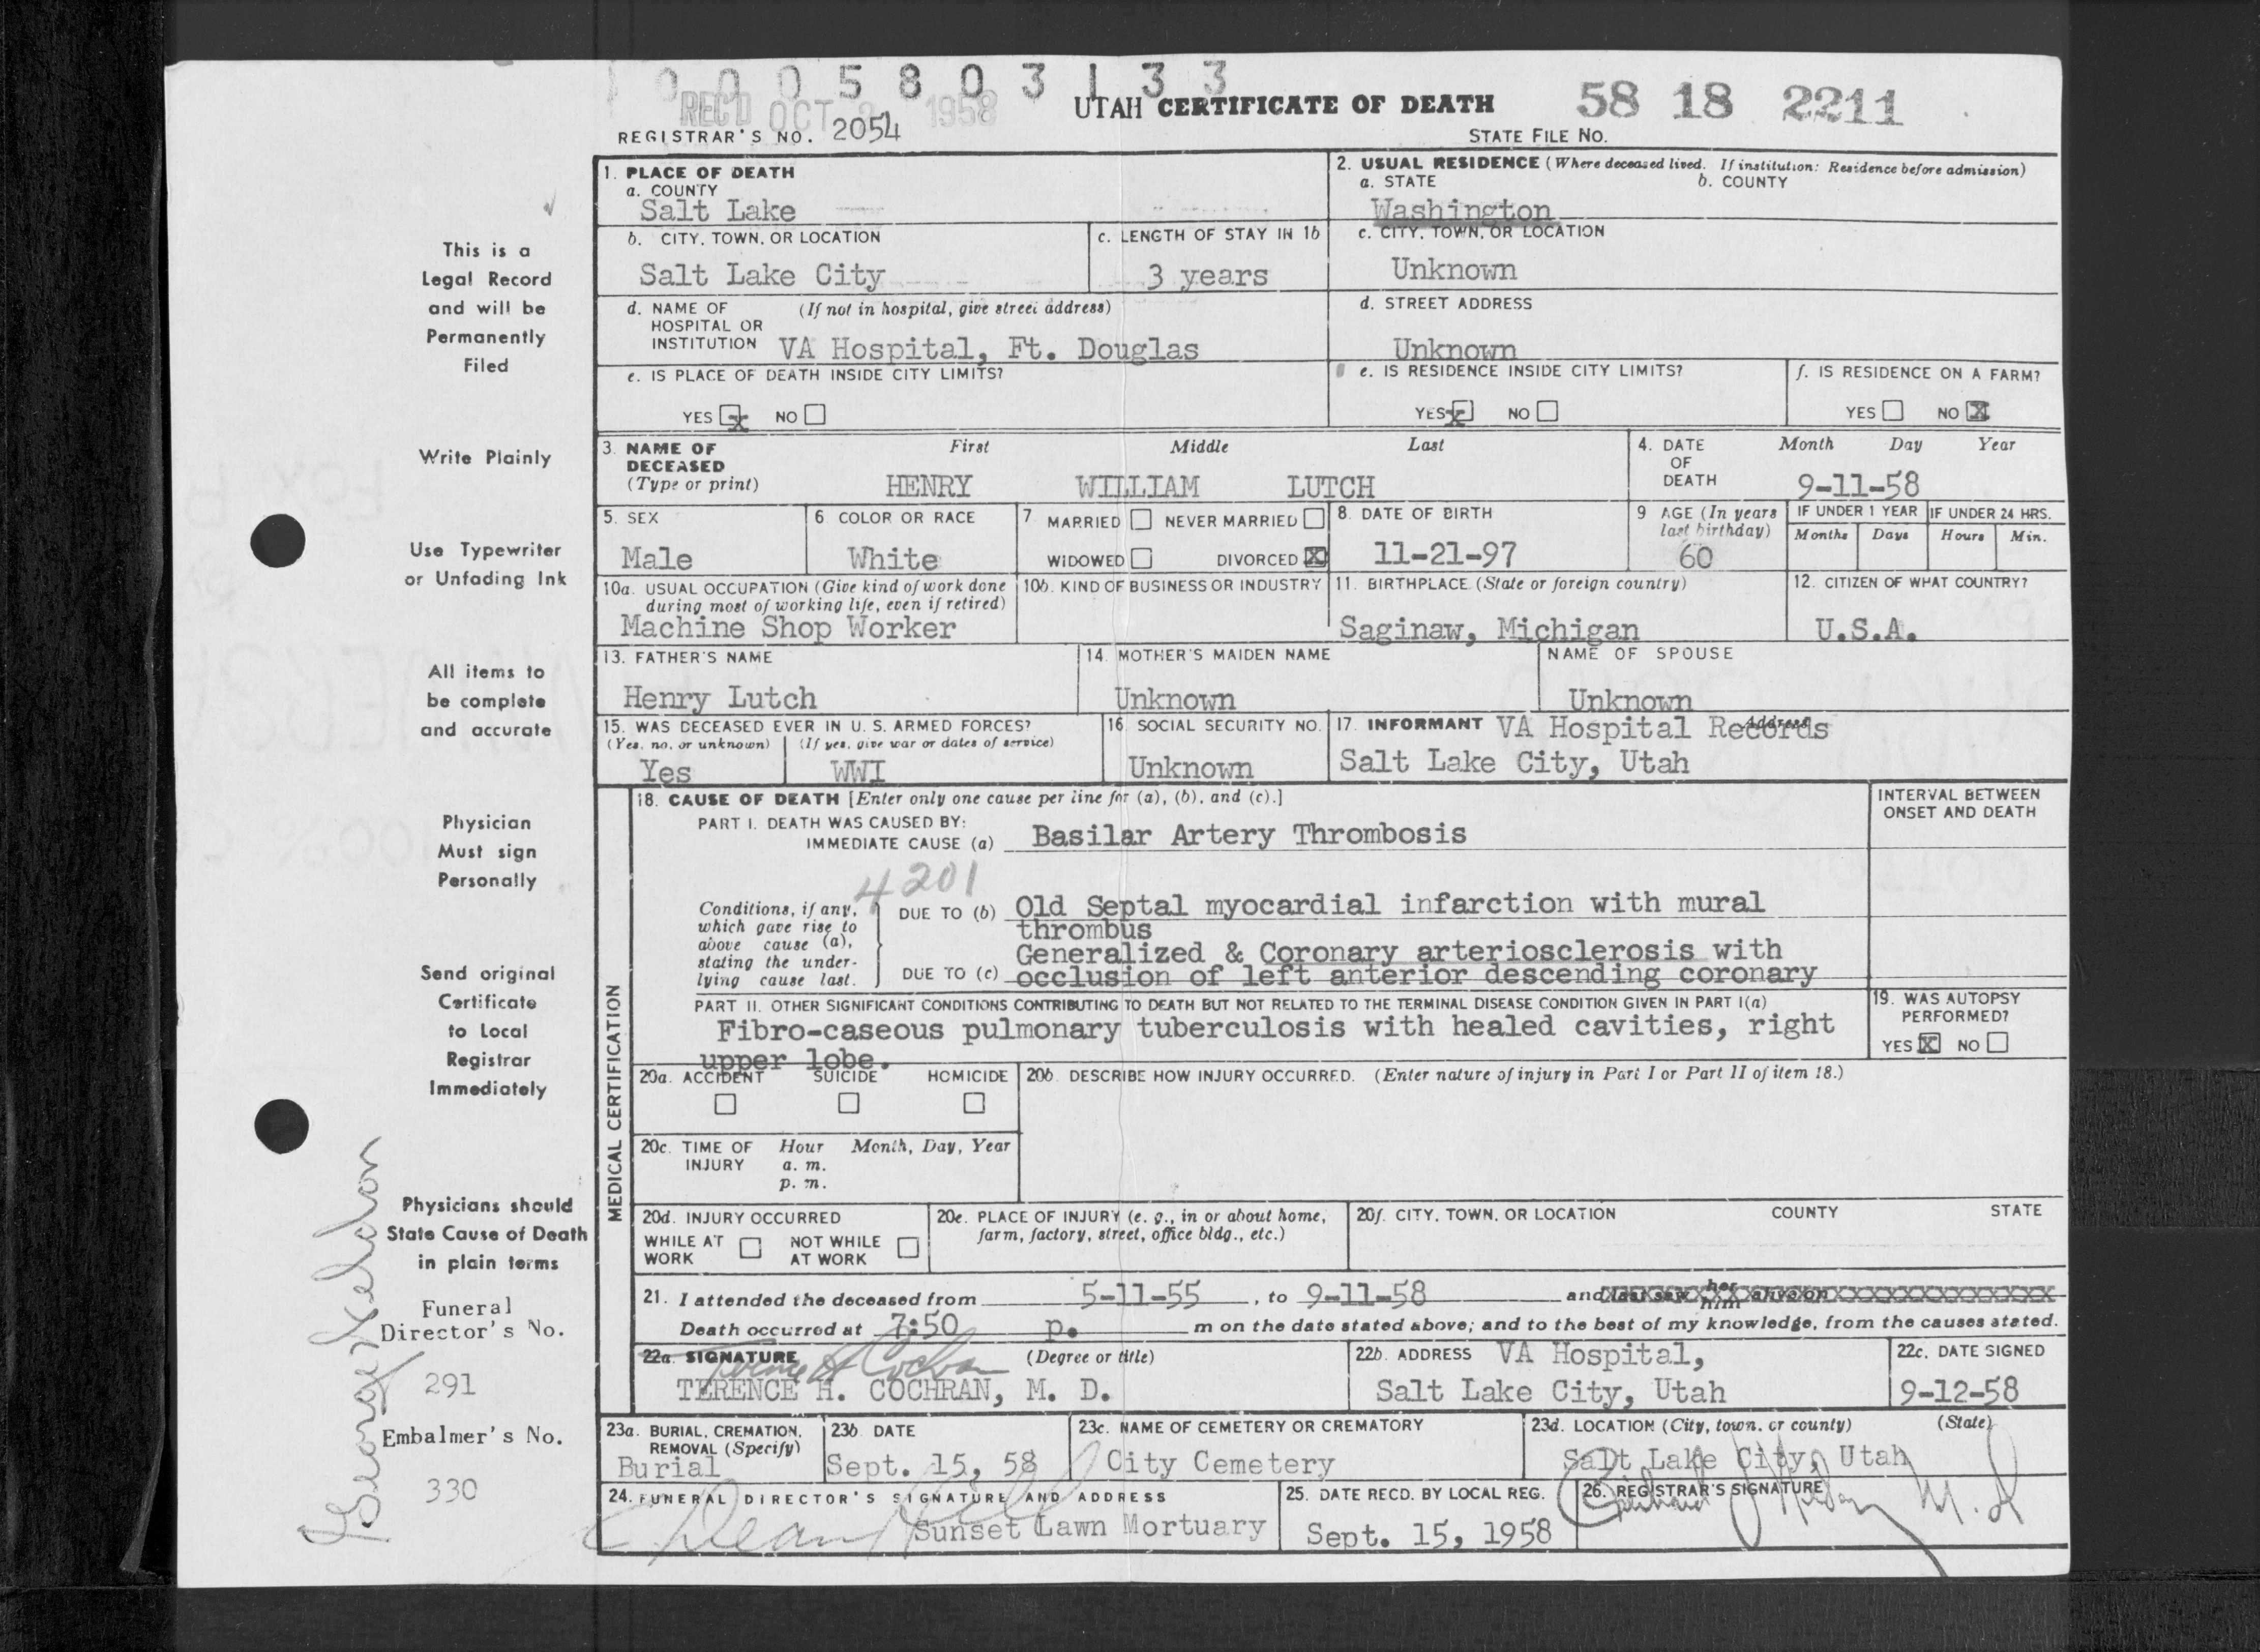 0 0 0 5 8 0 3 1 3 3
REC'D OCT 1958
UTAH CERTIFICATE OF DEATH
58 18 2211
REGISTRAR'S NO. 2054
STATE FILE NO.
1. PLACE OF DEATH
a. COUNTY
Salt Lake
2. USUAL RESIDENCE (Where deceased lived. If institution: Residence before admission)
a. STATE b. COUNTY
Washington
b. CITY, TOWN, OR LOCATION
Salt Lake City
c. LENGTH OF STAY IN 1b
3 years
c. CITY, TOWN, OR LOCATION
Unknown
d. NAME OF (If not in hospital, give street address)
HOSPITAL OR
INSTITUTION VA Hospital, Ft. Douglas
d. STREET ADDRESS
Unknown
e. IS PLACE OF DEATH INSIDE CITY LIMITS?
YES x NO
e. IS RESIDENCE INSIDE CITY LIMITS?
YES x NO
f. IS RESIDENCE ON A FARM?
YES NO X
3. NAME OF First Middle Last
DECEASED
(Type or print) HENRY WILLIAM LUTCH
4. DATE Month Day Year
OF
DEATH 9-11-58
5. SEX
Male
6 COLOR OR RACE
White
7 MARRIED NEVER MARRIED
WIDOWED DIVORCED X
8. DATE OF BIRTH
11-21-97
9 AGE (In years
last birthday)
60
IF UNDER 1 YEAR
Months Days
IF UNDER 24 HRS.
Hours Min.
10a. USUAL OCCUPATION (Give kind of work done
during most of working life, even if retired)
Machine Shop Worker
10b. KIND OF BUSINESS OR INDUSTRY
11. BIRTHPLACE (State or foreign country)
Saginaw, Michigan
12. CITIZEN OF WHAT COUNTRY?
U.S.A.
13. FATHER'S NAME
Henry Lutch
14. MOTHER'S MAIDEN NAME
Unknown
NAME OF SPOUSE
Unknown
15. WAS DECEASED EVER IN U. S. ARMED FORCES?
(Yes, no, or unknown) (If yes, give war or dates of service)
Yes WWI
16. SOCIAL SECURITY NO.
Unknown
17. INFORMANT VA Hospital Records Address
Salt Lake City, Utah
MEDICAL CERTIFICATION
18. CAUSE OF DEATH [Enter only one cause per line for (a), (b), and (c).]
PART I. DEATH WAS CAUSED BY:
IMMEDIATE CAUSE (a) Basilar Artery Thrombosis
INTERVAL BETWEEN
ONSET AND DEATH
4201
Conditions, if any,
which gave rise to
above cause (a),
stating the under-
lying cause last.
DUE TO (b) Old Septal myocardial infarction with mural
thrombus
Generalized & Coronary arteriosclerosis with
DUE TO (c) occlusion of left anterior descending coronary
PART II. OTHER SIGNIFICANT CONDITIONS CONTRIBUTING TO DEATH BUT NOT RELATED TO THE TERMINAL DISEASE CONDITION GIVEN IN PART I(a)
Fibro-caseous pulmonary tuberculosis with healed cavities, right
upper lobe.
19. WAS AUTOPSY
PERFORMED?
YES X NO
20a. ACCIDENT SUICIDE HOMICIDE
20b. DESCRIBE HOW INJURY OCCURRED. (Enter nature of injury in Part I or Part II of item 18.)
20c. TIME OF Hour Month, Day, Year
INJURY a. m.
p. m.
20d. INJURY OCCURRED
WHILE AT NOT WHILE
WORK AT WORK
20e. PLACE OF INJURY (e. g., in or about home,
farm, factory, street, office bldg., etc.)
20f. CITY, TOWN, OR LOCATION COUNTY STATE
21. I attended the deceased from 5-11-55, to 9-11-58 and last saw her him alive on
Death occurred at 7:50 p. m on the date stated above; and to the best of my knowledge, from the causes stated.
22a. SIGNATURE (Degree or title)
Terence H Cochran
TERENCE H. COCHRAN, M. D.
22b. ADDRESS VA Hospital,
Salt Lake City, Utah
22c. DATE SIGNED
9-12-58
23a. BURIAL, CREMATION,
REMOVAL (Specify)
Burial
23b DATE
Sept. 15, 58
23c. NAME OF CEMETERY OR CREMATORY
City Cemetery
23d. LOCATION (City, town, or county) (State)
Salt Lake City, Utah
24. FUNERAL DIRECTOR'S SIGNATURE AND ADDRESS
Sunset Lawn Mortuary
25. DATE RECD. BY LOCAL REG.
Sept. 15, 1958
26. REGISTRAR'S SIGNATURE
M.D
This is a
Legal Record
and will be
Permanently
Filed
Write Plainly
Use Typewriter
or Unfading Ink
All items to
be complete
and accurate
Physician
Must sign
Personally
Send original
Certificate
to Local
Registrar
Immediately
Physicians should
State Cause of Death
in plain terms
Funeral
Director's No.
291
Embalmer's No.
330